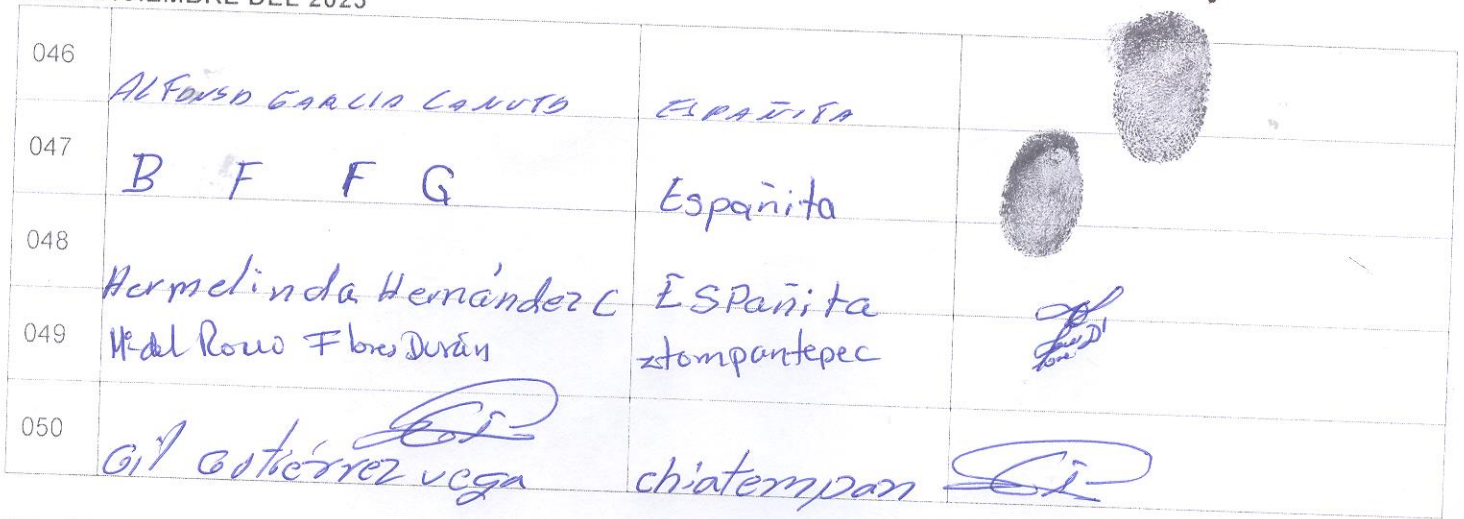 DEL 2023
046 ALFONSO GARCIA CANUTO ESPAÑITA
047 B F F G Españita
048 Hermelinda Hernández C ESPañita
049 Mª del Rocio Flores Durán ztompantepec
050 Gil Gutiérrez vega chiatempan